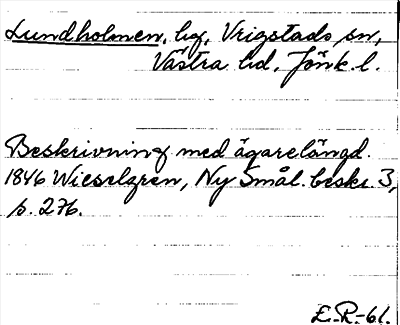 Lundholmen, hg, Vrigstads sn,
Västra hd, Jönk. l.
Beskrivning med ägarelängd.
1846 Wieselgren, Ny Smål. beskr. 3,
p. 276.
E.R.-61.